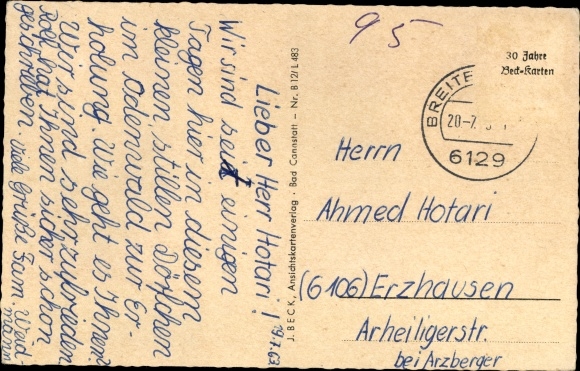 95
30 Jahre
Beck-Karten
20.-7.
6129
Herrn
Ahmed Hotari
(6106) Erzhausen
Arheiligerstr.
bei Arzberger
J. BECK, Ansichtskartenverlag · Bad Cannstatt – Nr. B 12/ L 483
19.7.63
Lieber Herr Hotari!
Wir sind seit einigen
Tagen hier in diesem
kleinen, stillen Dörfchen
im Odenwald zur Er-
holung. Wie geht es Ihnen?
Wir sind sehr zufrieden
hat Ihnen sicher schon
geschrieben. Viele Grüße Fam.